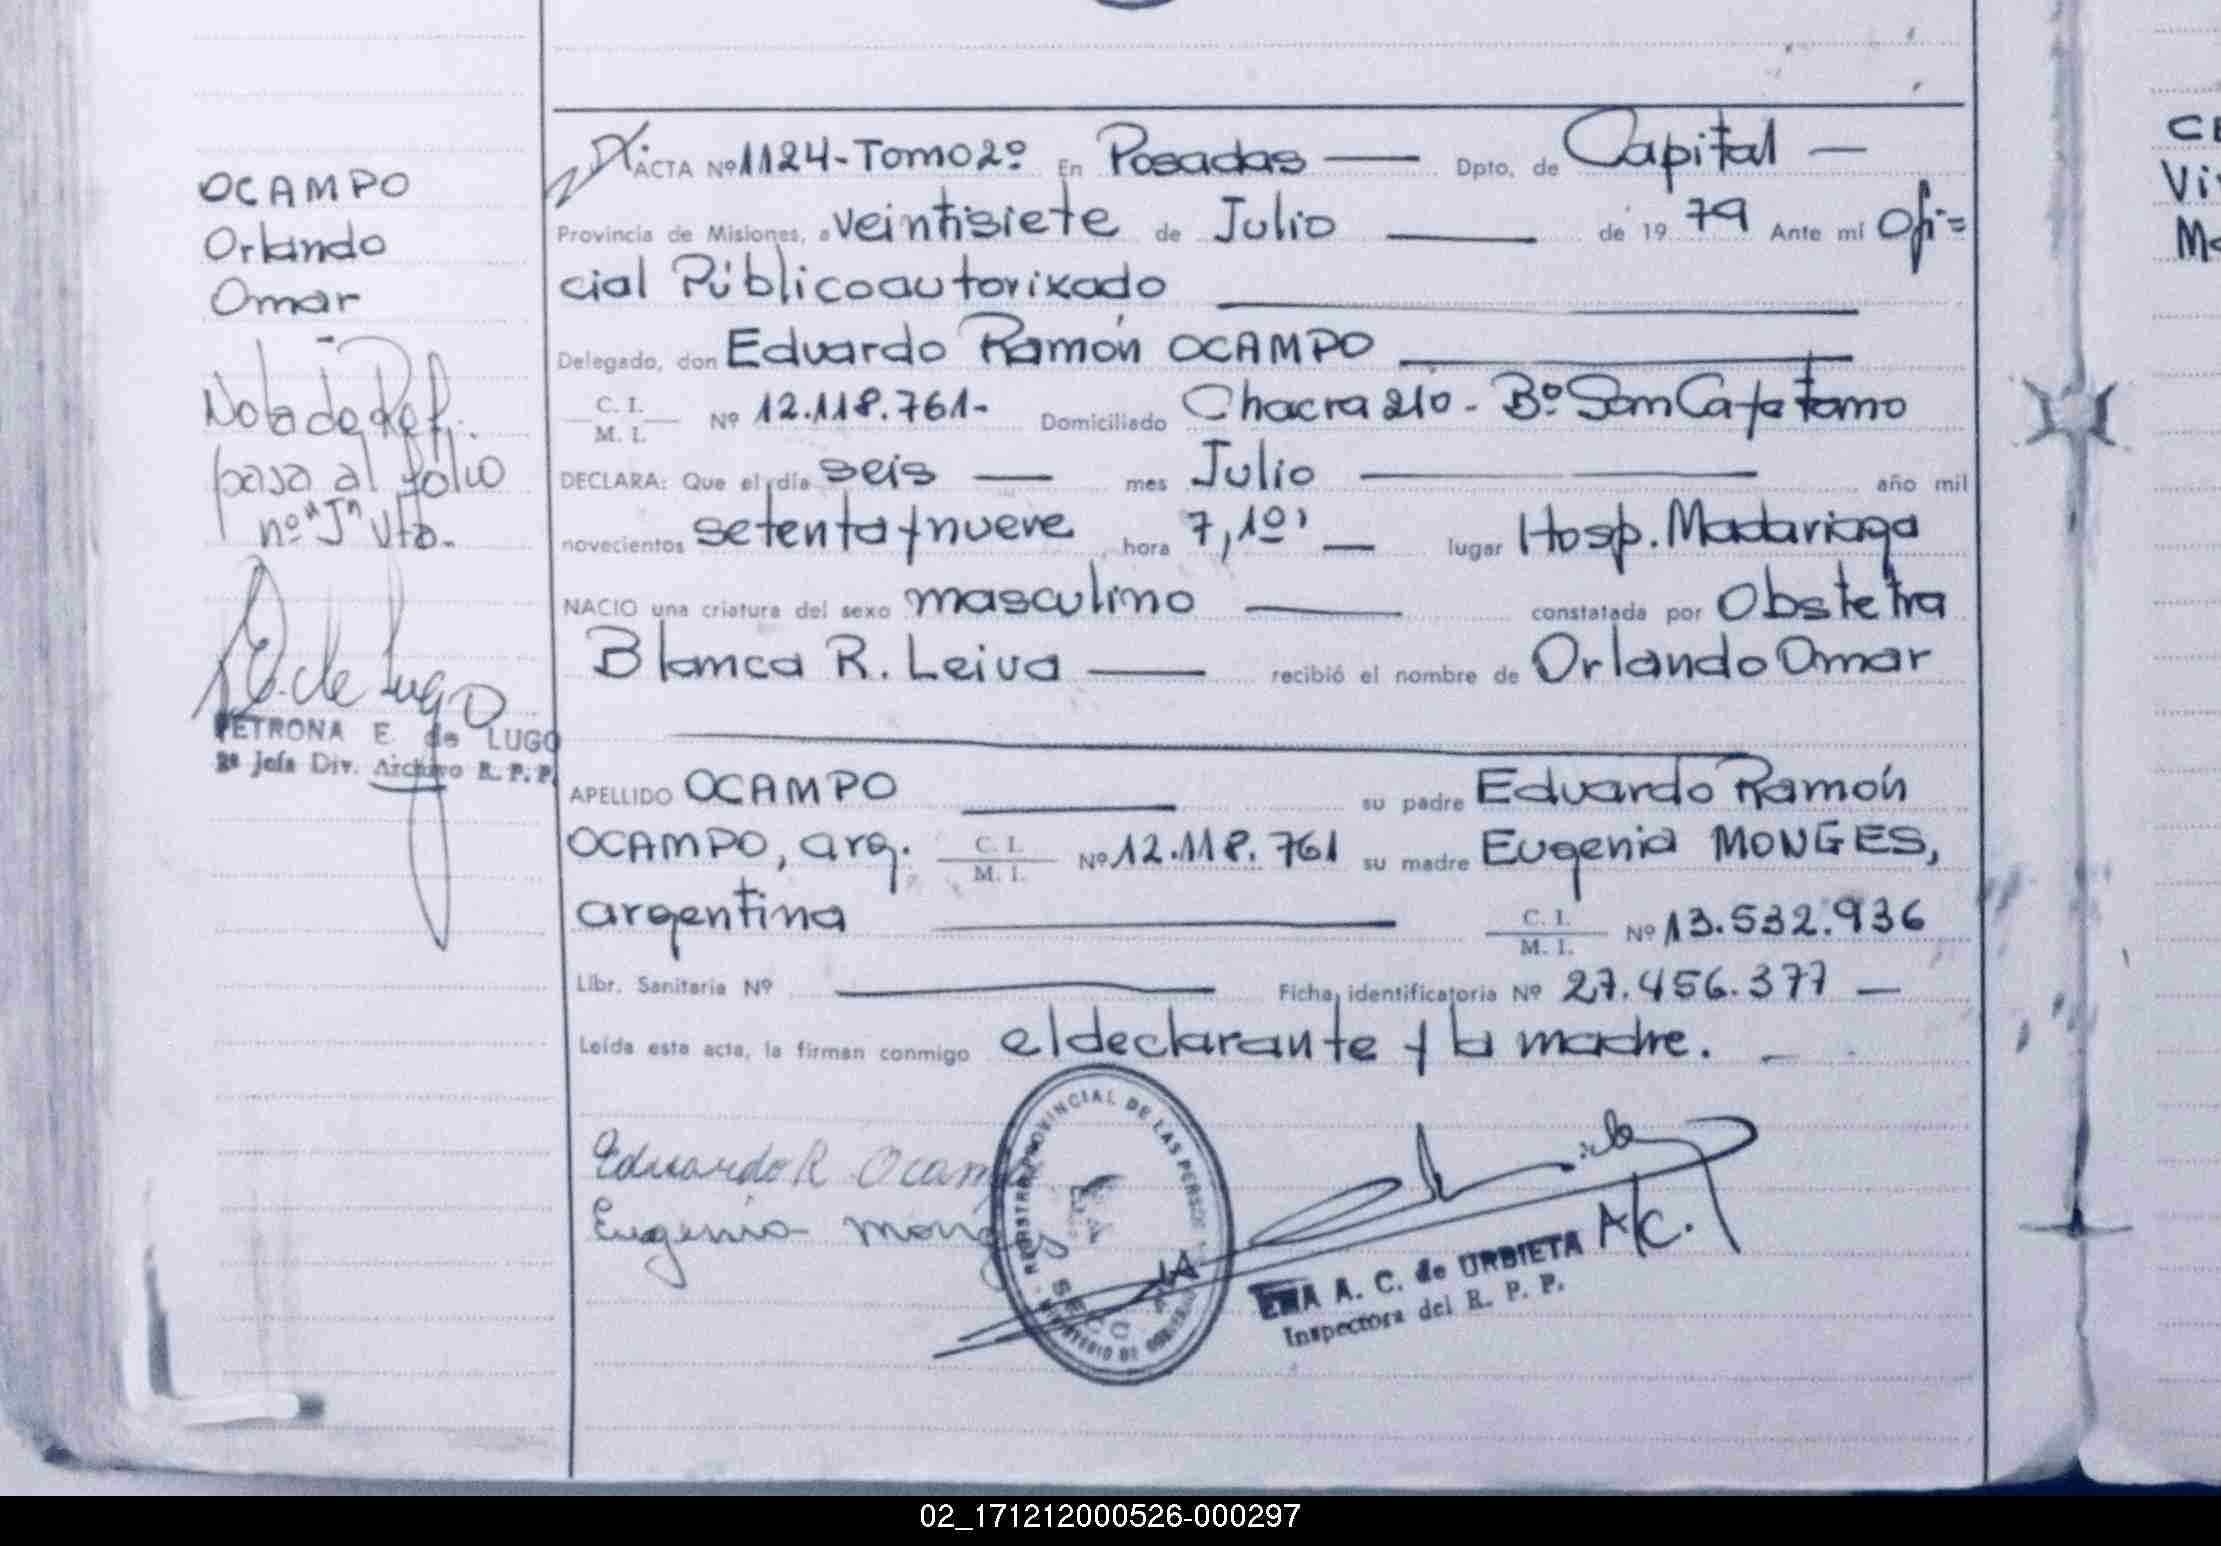 OCAMPO
Orlando
Omar
Nota de Ref.
pasa al folio
nº "J" Vto.
E. de Lugo
PETRONA E. de LUGO
2ª Jefa Div. Archivo R. P. P.
ACTA Nº 1124-Tomo 2º En Posadas — Dpto. de Capital —
Provincia de Misiones, a veintisiete de Julio — de 19 79 Ante mí Ofi=
cial Público autorixado
Delegado, don Eduardo Ramón OCAMPO
C. I.
M. I. Nº 12.118.761- Domiciliado Chacra 210 - Bº San Cayetano
DECLARA: Que el día seis — mes Julio — año mil
novecientos setenta y nueve hora 7,10' — lugar Hosp. Madariaga
NACIO una criatura del sexo masculino — constatada por Obstetra
Blanca R. Leiva — recibió el nombre de Orlando Omar
APELLIDO OCAMPO — su padre Eduardo Ramón
OCAMPO, arg. C. I. M. I. Nº 12.118.761 su madre Eugenia MONGES,
argentina — C. I. M. I. Nº 13.532.936
Libr. Sanitaria Nº — Ficha identificatoria Nº 27.456.377 —
Leída esta acta, la firman conmigo el declarante y la madre.
Eduardo R Ocampo
Eugenia
REGISTRO PROVINCIAL DE LAS PERSONAS
MINISTERIO DE GOBIERNO
A/C.
EMA A. C. de URBIETA
Inspectora del R. P. P.
CE
Vi
Ma
02_171212000526-000297